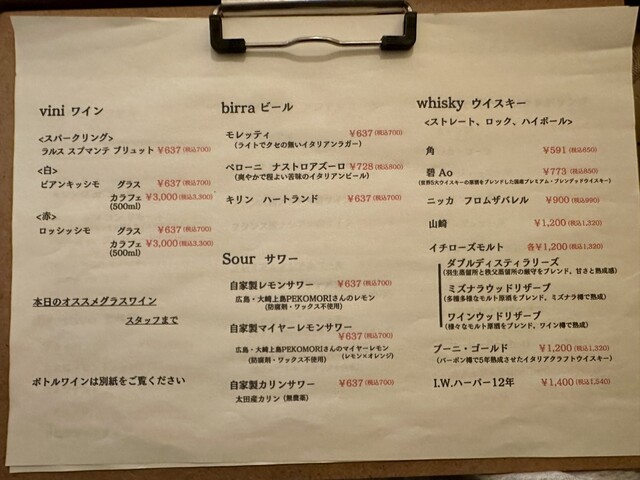 vini ワイン
<スパークリング>
ラルス スプマンテ ブリュット ¥637(税込700)
<白>
ビアンキッシモ グラス ¥637(税込700)
カラフェ ¥3,000(税込3,300)
(500ml)
<赤>
ロッシッシモ グラス ¥637(税込700)
カラフェ ¥3,000(税込3,300)
(500ml)
本日のオススメグラスワイン
スタッフまで
ボトルワインは別紙をご覧ください
birra ビール
モレッティ ¥637(税込700)
(ライトでクセの無いイタリアンラガー)
ペローニ ナストロアズーロ ¥728(税込800)
(爽やかで程よい苦味のイタリアンビール)
キリン ハートランド ¥637(税込700)
Sour サワー
自家製レモンサワー ¥637(税込700)
広島・大崎上島PEKOMORIさんのレモン
(防腐剤・ワックス不使用)
自家製マイヤーレモンサワー
¥637(税込700)
広島・大崎上島PEKOMORIさんのマイヤーレモン
(防腐剤・ワックス不使用) (レモン×オレンジ)
自家製カリンサワー ¥637(税込700)
太田産カリン (無農薬)
whisky ウイスキー
<ストレート、ロック、ハイボール>
角 ¥591(税込650)
碧 Ao ¥773(税込850)
(世界5大ウイスキーの原酒をブレンドした国産プレミアム・ブレンデッドウイスキー)
ニッカ フロムザバレル ¥900(税込990)
山崎 ¥1,200(税込1,320)
イチローズモルト 各¥1,200(税込1,320)
ダブルディスティラリーズ
(羽生蒸留所と秩父蒸留所の厳守をブレンド、甘さと熟成感)
ミズナラウッドリザーブ
(多種多様なモルト原酒をブレンド、ミズナラ樽で熟成)
ワインウッドリザーブ
(様々なモルト原酒をブレンド、ワイン樽で熟成)
プーニ・ゴールド ¥1,200(税込1,320)
(バーボン樽で5年熟成させたイタリアクラフトウイスキー)
I.W.ハーパー12年 ¥1,400(税込1,540)